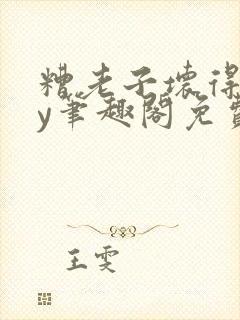 糟老子壞得
y筆趣閣免費
王雯